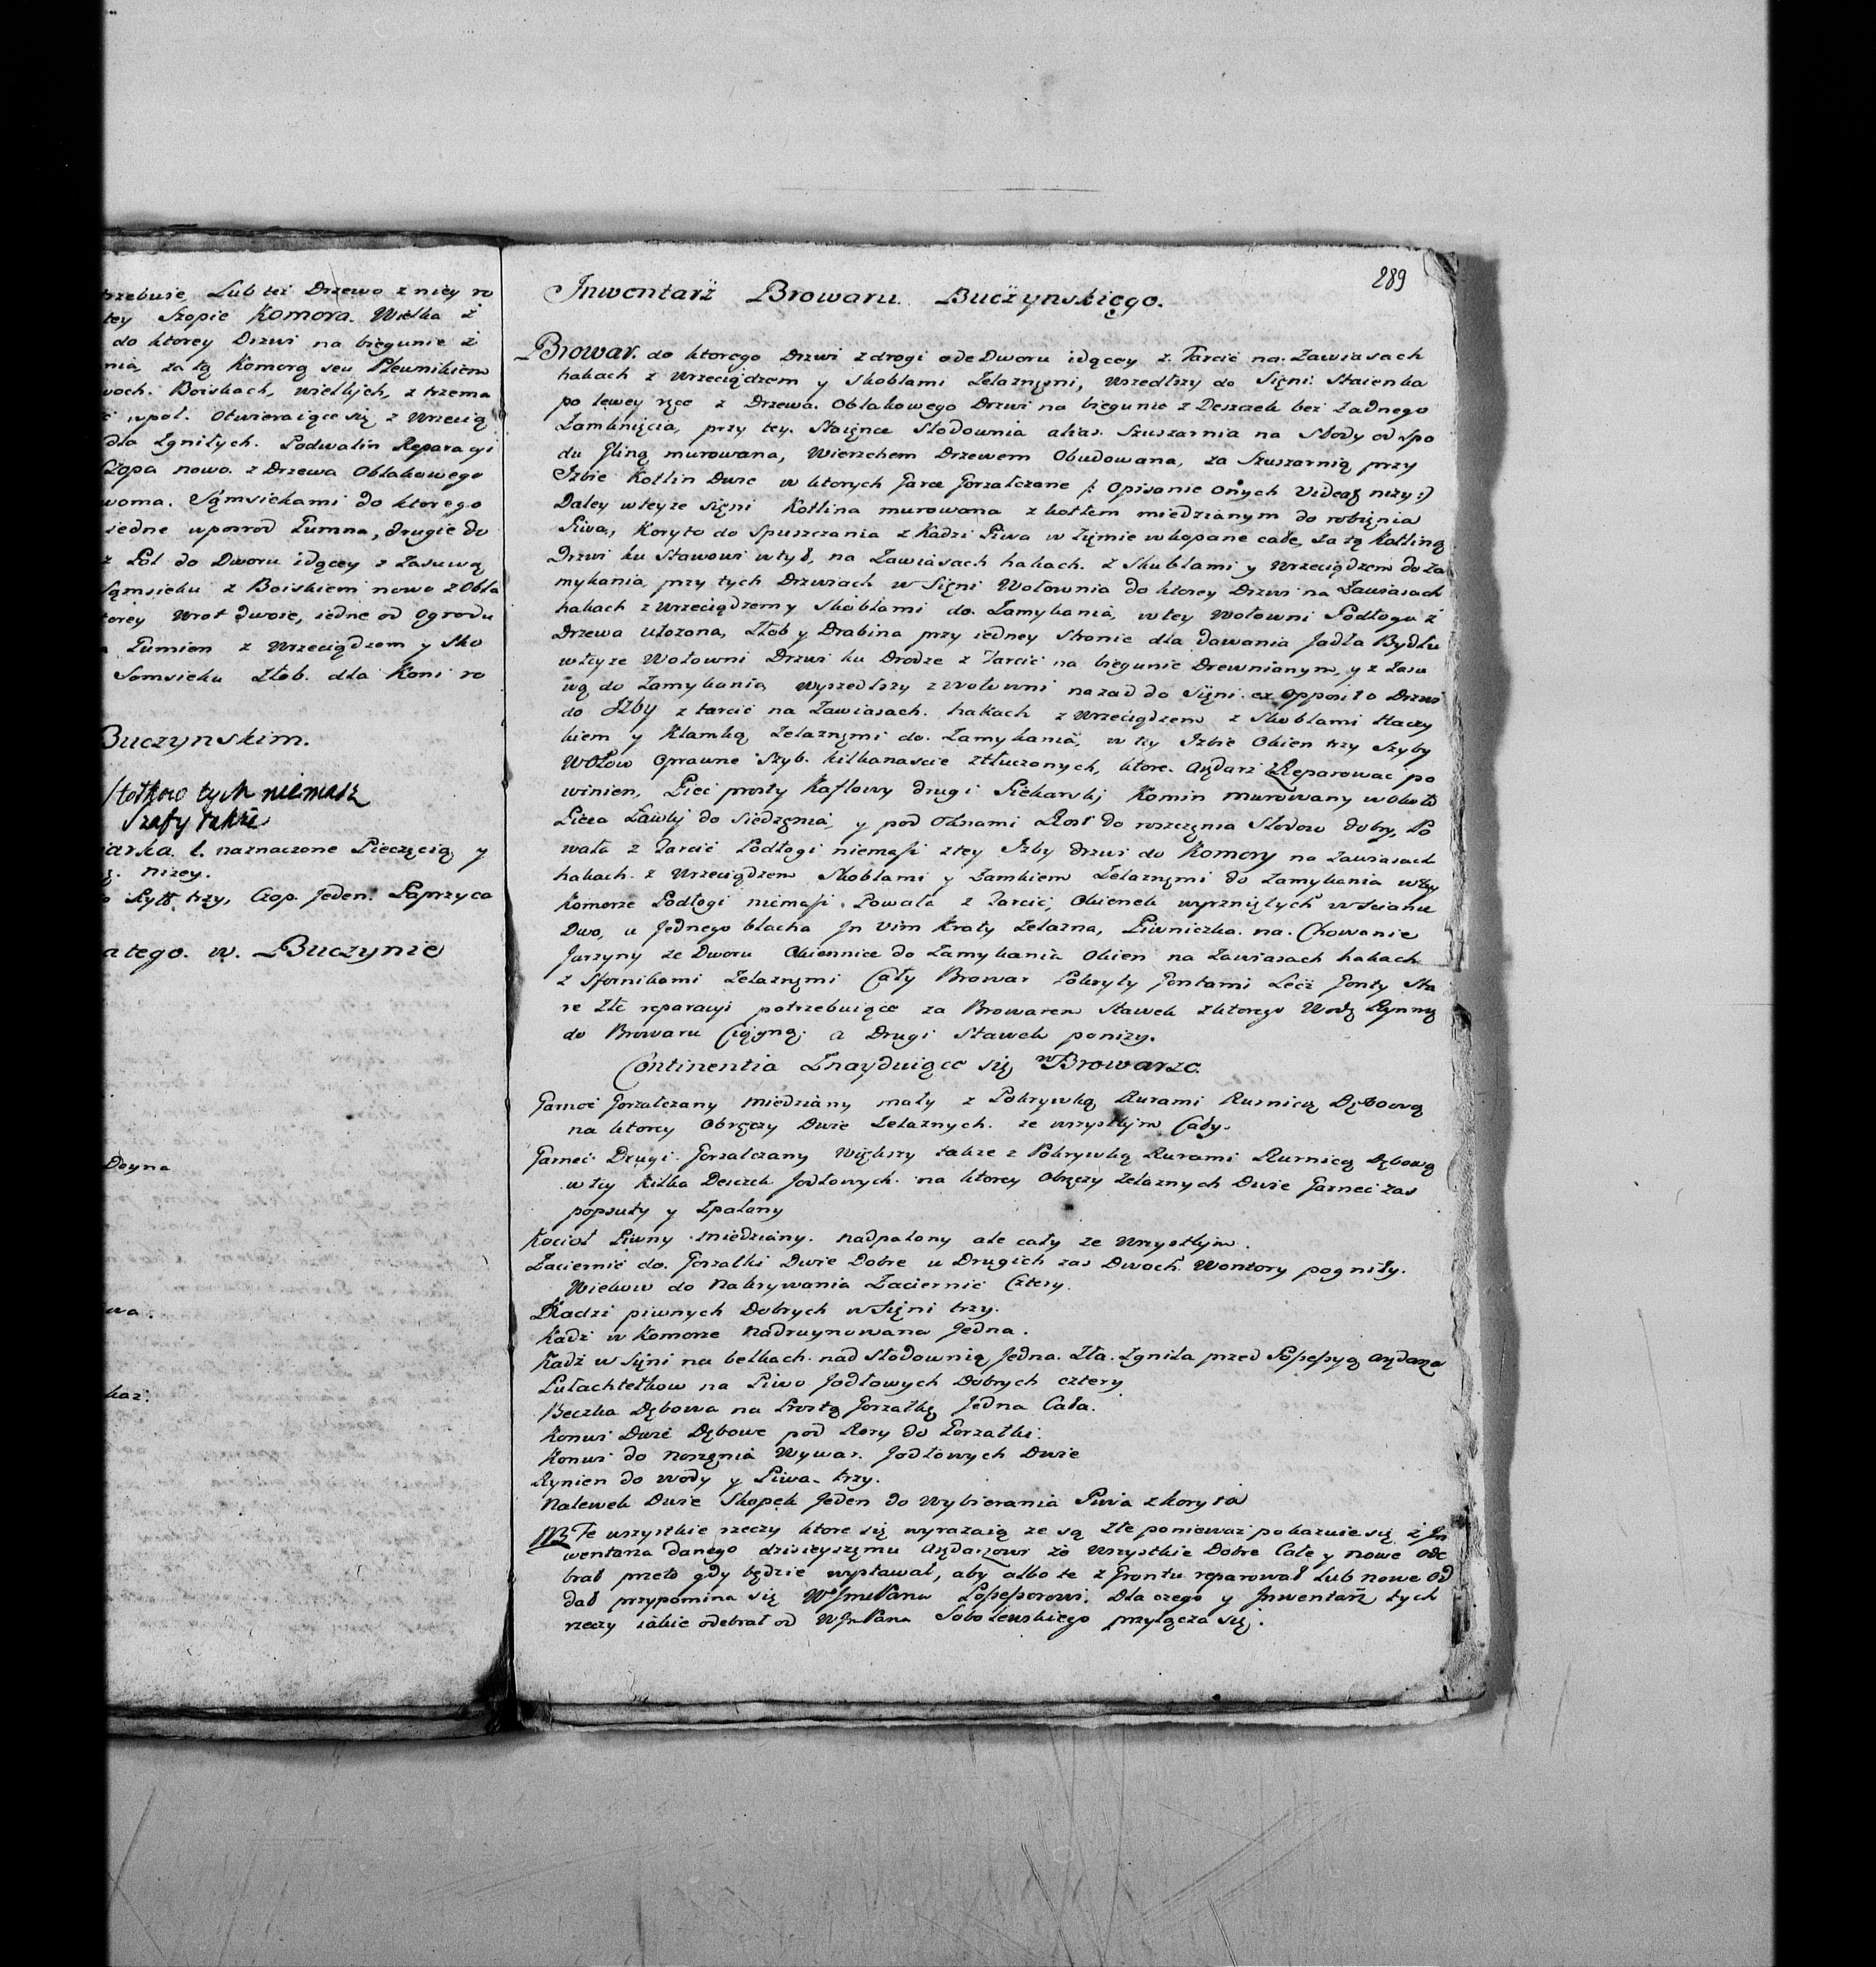 trzebuie, Lub też Drzewo z niey ro
tey Szopie Komora. Wielka z
do ktorey Drzwi na biegunie z
nia, za tą Komorą seu Plewnikiem
woch. Boiskach, wielkich, z trzema
wpoł. Otwieraiące się z Wrzecią
dla Zgniłych. Podwalin Reparacyi
Szopa nowo. z Drzewa Obłakowego
woma. Sąmsiekami do ktorego
iedne wposrod Gumna, drugie do
z Pol do Dworu idącey z Zasuwą
Sąmsieku z Boiskiem nowo z Obła
torey Wrot dwoie, iedne od Ogrodu
Gumien z Wrzeciądzem y Sko
Somsieku Złob. dla Koni ro
Buczynskim.
Stołkow tych niemasz
Szafy także
iarka. l. naznaczone Pieczęcią y
niżey.
Sytt trzy, Czop. Jeden. Paprzyca
atego. w. Buczynie
Doyna
wa.
kaz:
289
Inwentarz Browaru Buczynskięgo.
Browar. do ktorego Drzwi z drogi ode Dworu idącey z Tarcic na. Zawiasach
hakach z Wrzeciądzem y Skoblami Zelaznęmi, Wszedłszy do Sięni Staienka
po lewey ręce z Drzewa. Obłakowego Drzwi na biegunie z Deszczek bez Zadnego
Zamknięcia, przy tey. Staięnce Słodownia alias. Szuszarnia na Słody od Spo
du Gliną murowana, Wierzchem Drzewem Obudowana, za Szuszarnią przy
Izbie Kotlin Dwie w ktorych Garce Gorzałczane /: Opisanie Onych Videaz nizy :/
Daley wteyze sięni Kotlina murowana z kotłem miedzianym do robięnia
Piwa, Koryto do Spuszczania z Kadzi Piwa w Zięmie wkopane całe, Za tą Kotliną
Drzwi ku Stawowi wtył, na Zawiasach hakach. z Skublami y Wrzeciądzem do Za
mykania, przy tych Drzwiach w Sięni Wołownia do ktorey Drzwi na Zawiasach
hakach z Wrzeciądzem y Skoblami do. Zamykania, w tey Wołowni Podłoga z
Drzewa Ułozona, Złob y Drabina przy iedney Stronie dla dawania Jadła Bydłu
wteyze Wołowni Drzwi ku Drodze z Tarcic na biegunie Drewnianym, y z Zasu
wą do Zamykania, wyszedłszy z Wołowni nazad do Sięni. ex opposito Drzwi
do Jzby z tarcic na Zawiasach. hakach z Wrzeciądzem z Skoblami Haczy
kiem y Klamką Zelaznęmi do. Zamykania, w tey Izbie Okien trzy Szyby
w Ołow Oprawne Szyb. kilkanascie ztłuczonych, ktore. Arędarz Reparowac po
winien, Piec prosty Kaflowy drugi Piekarskj Komin murowany wokoło
Pieca Ławkj do Siedzęnia, y pod Oknami Rost do roszczęnia Słodow dobry, Po
wała z Tarcic Podłogi niemasz ztey Izby drzwi do Komory na Zawiasach
hakach. z Wrzeciądzem Skoblami y Zamkiem Zelaznęmi do Zamykania wtey
Komorze Podłogi niemasz. Powała z Tarcic, Okienek wyrzniętych w Scianie
Dwo, u Jednego blacha In vim Kraty Zelazna, Piwniczka. na. Chowanie
Jarzyny ze Dworu Okiennice do Zamykania Okien na Zawiasach hakach
z Sfornikami Zelaznęmi Cały Browar Pokryty Gontami Lecz Gonty Sta
re Złe reparacyi potrzebuiące za Browarem Stawek zktorego Wodę Rynną
do Browaru Ciągną; a Drugi Stawek ponizy.
Continentia Znayduiące się w Browarze.
Garnec Gorzałczany miedziany mały z Pokrywką Rurami Rurnicą Dębową
na ktorey Obręczy Dwie Zelaznych. ze wszystkjm Cały.
Garnec Drugi Gorzałczany Większy także z Pokrywką Rurami Rurnicą Dębową
w tey Kilka Desczek Jodłowych. na ktorey Obręczy Zelaznych Dwie Garnec zas
popsuty y Zpalony
Kocioł Piwny miedziany. nadpalony ale cały ze Wszystkjm.
Zaciernic do. Gorzałki Dwie Dobre u Drugich zas Dwoch Wontory pogniły.
Wiekow do Nakrywania Zaciernic Cztery.
Kadzi piwnych Dobrych w Sięni trzy.
Kadz w Komorze Nadruynowana Jedna.
Kadz w Sięni na belkach. nad Słodownią Jedna. Zła. Zgniła przed Possessyą Arędarza
Pułachtelkow na Piwo Jodłowych Dobrych cztery
Beczka Dębowa na Prostą Gorzałkę Jedna Cała.
Konwi Dwie Dębowe pod Rory do Gorzałki.
Konwi do Noszęnia Wywar. Jodłowych Dwie
Rynien do wody y Piwa. trzy.
Nalewek Dwie Skopek Jeden do Wybierania Piwa z koryta
NB Te wszystkie rzeczy ktore się wyrazaią ze są złe poniewaz pokazuie się z In
wentarza danego dzisieyszęmu Arędarzowi że Wszystkie Dobre Całe y nowe Ode
brał przeto gdy będzie wystawał, aby albo te z Gruntu reparował Lub nowe Od
dał przypomina się WoJmćPanu Possessorowi. Dla czego y Inwentarz tych
rzeczy iakie odebrał od WJmPana Sobolewskiego przyłącza się.